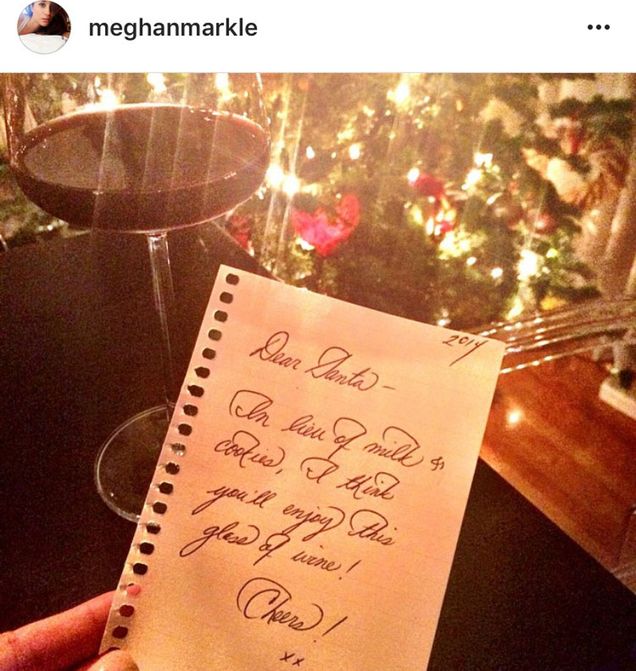 meghanmarkle
2014
Dear Santa -
In lieu of milk &
cookies, I think
you'll enjoy this
glass of wine!
Cheers!
xx